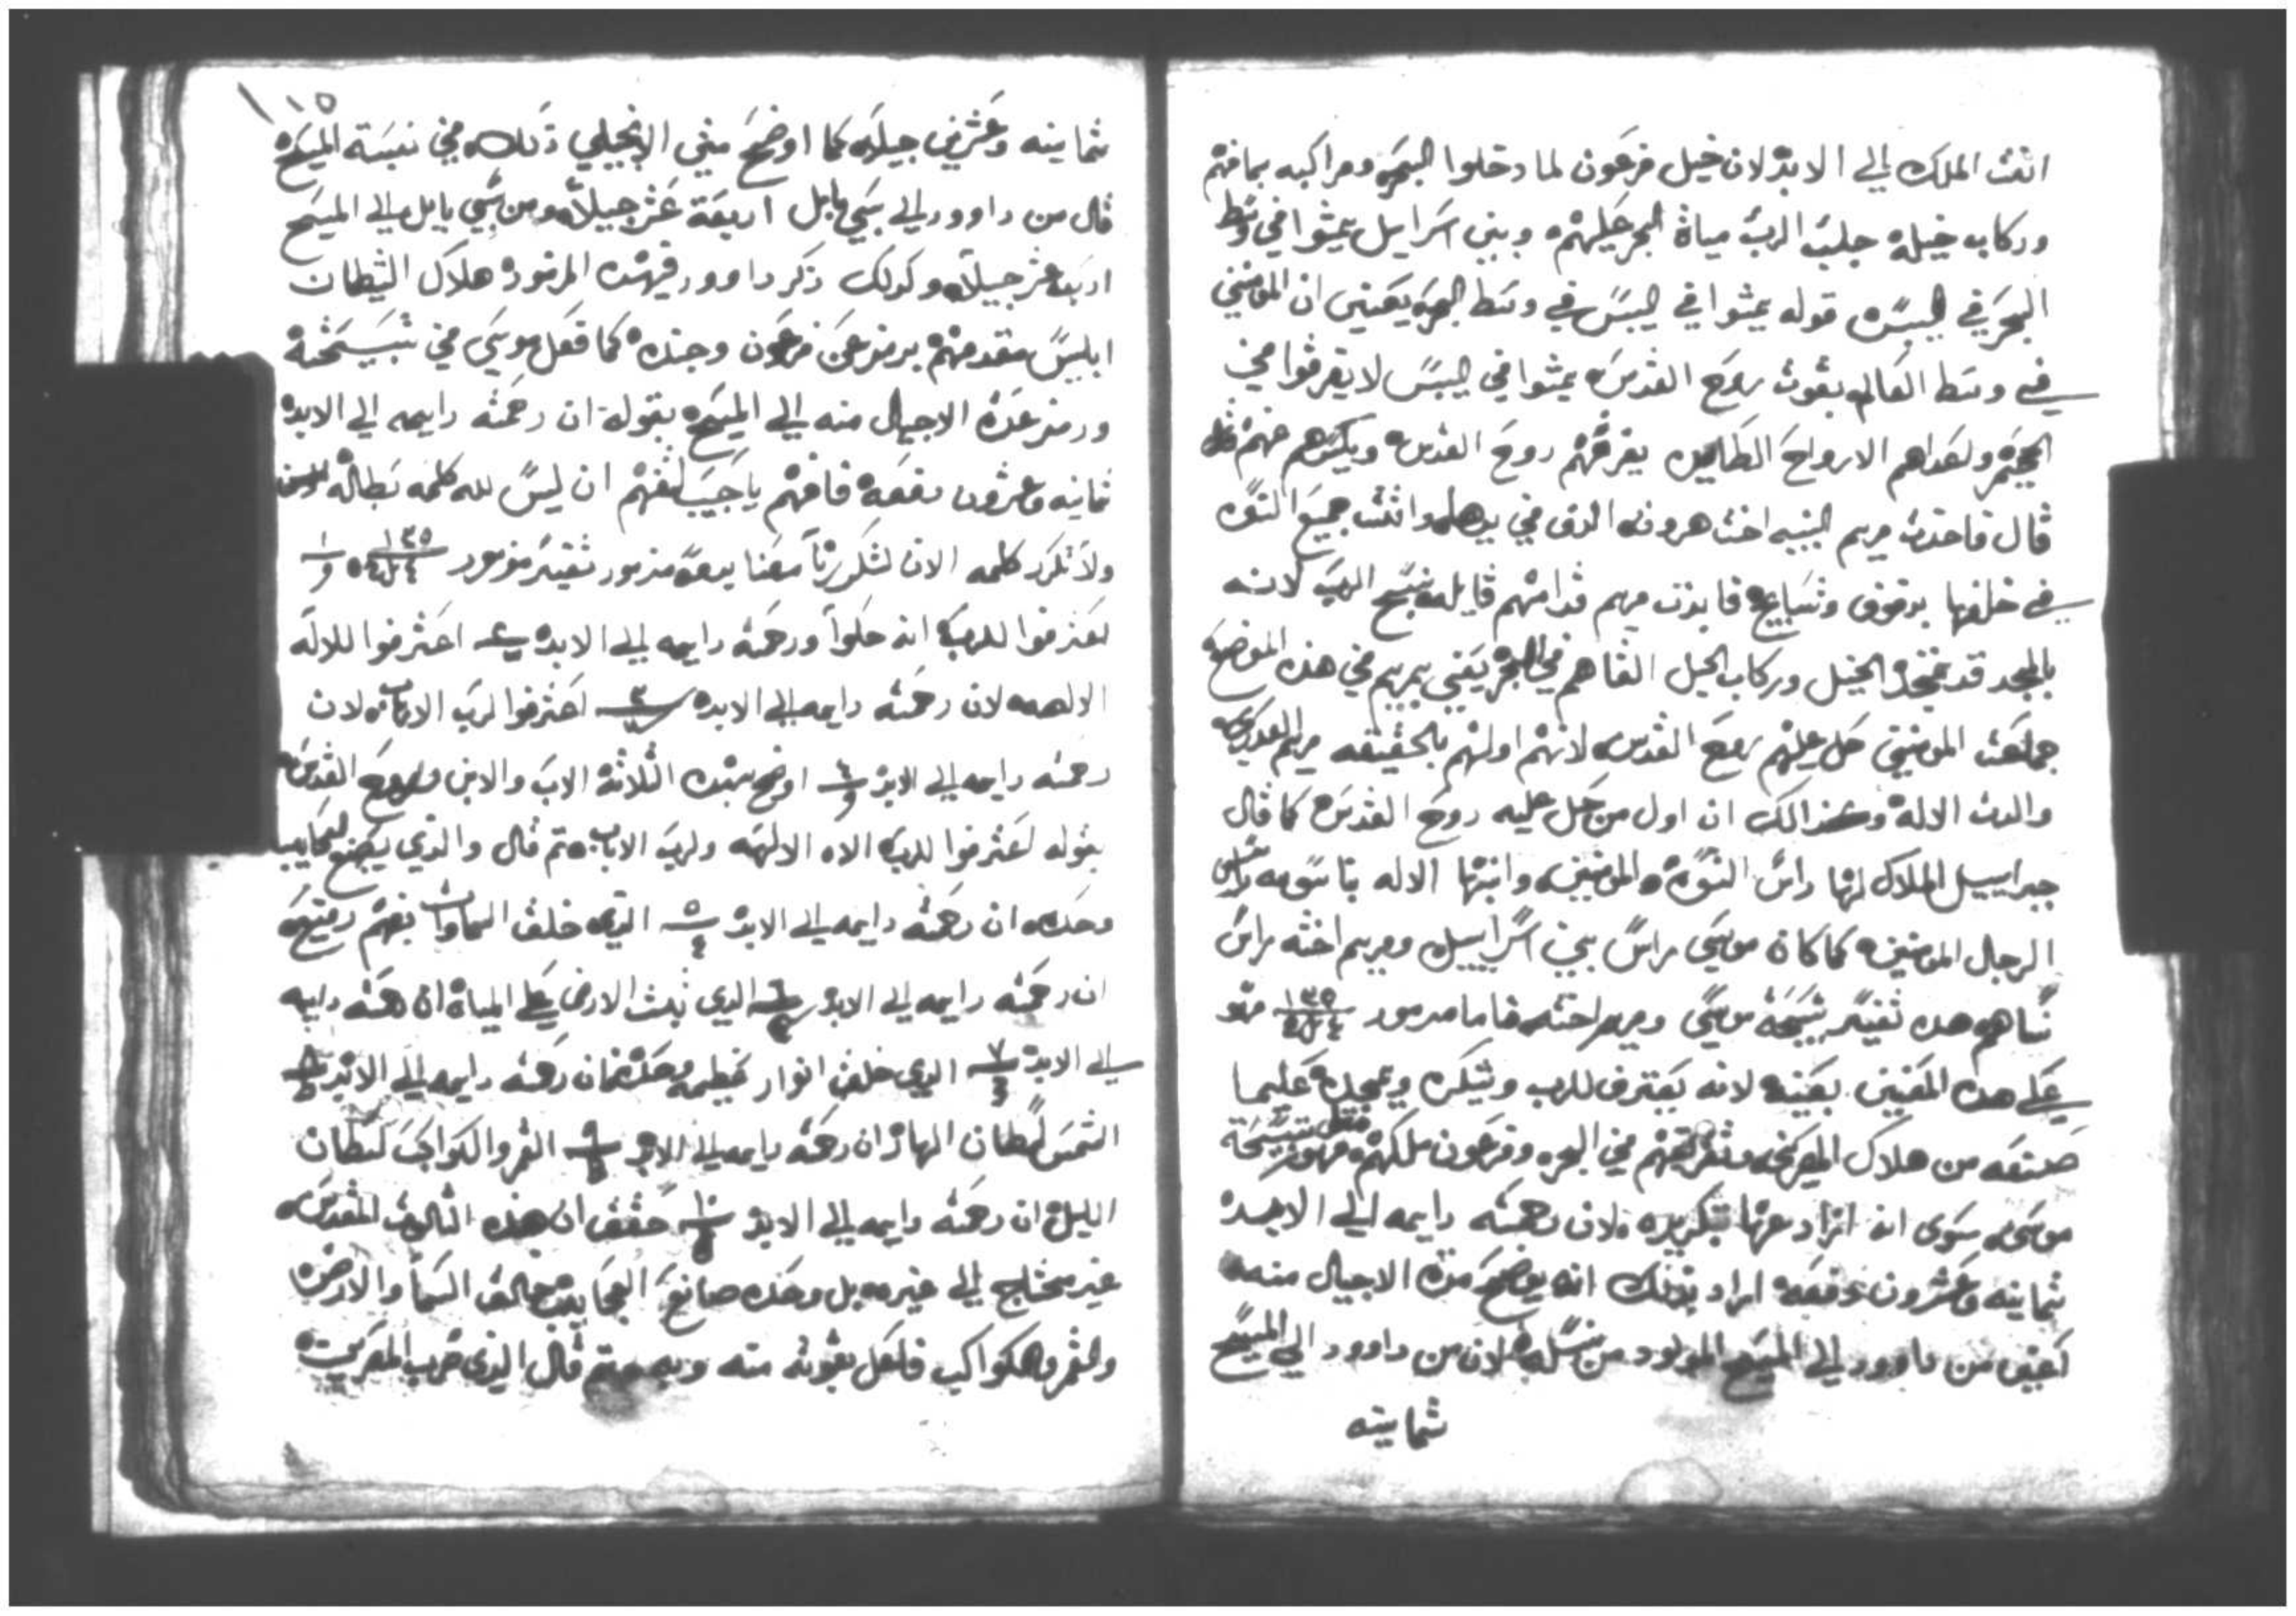 انت الملك الي الابد لان خيل فرعون لما دخلوا البحر ومراكبه بمافيهم
وركاب خيله جلب الرب مياة البحر عليهم وبني اسراييل يمشوا في وسط
البحر في اليبس قوله يمشوا في اليبس في وسط البحر يعني ان المومنين
في وسط العالم بقوت روح القدس يمشوا في اليبس لا يغرقوا في
الجحيم ولعداهم الارواح الطالمين يغرقهم روح القدس
قال فاخدت مريم النبيه اخت هرون الدف في يدها واتت جميع النسوه
في خلفها بدفوف وتسابيح فابدت مريم قدامهم قايله نسبح الرب لانه
بالمجد قد تمجد الخيل وركاب الخيل القاهم في البحر يعني بمريم في هذه الموضع
جماعت المومنين حل عليهم روح القدس لانهم اولهم بالحقيقه مريم العدري
والدت الاله وكذالك ان اول من حل عليه روح القدس كما قال
جبراييل الملاك لها راس النسوه المومنين وابنها الاله بناسوته راس
الرجال المومنين كما كان موسي راس بني اسراييل ومريم اخته راس
نساهم هده تفسير تسبحة موسي ومريم اخته فاما مزمور ١٣٥ فهو
علي هده المعنين بعينه لانه يعترف للرب ويشكره ويمجده علي ما
صنعه من هلاك المصريين وتغريقهم في البحر وفرعون ملكهم فهو مثل تسبحة
موسي سوي انه ازاد عنها بتكريره لان رحمته دايمه الي الابد
ثمانيه وعشرون دفعه اراد بذلك انه يوضح مدة الاجيال منه
اعني من داوود الي المسيح المولود من نسله لان من داوود الي المسيح
ثمانيه
١١٥
ثمانيه وعشرين جيلا كما اوضح متي الانجيلي ذلك في نسبة المسيح
قال من داوود الي سبي بابل اربعة عشر جيلا ومن سبي بابل الي المسيح
اربعة عشر جيلا وكدلك ذكر داوود في هده المزمور هلاك الشيطان
ابليس متقدمهم برمز عن فرعون وجنده كما فعل موسي في تسبحته
ورمز عدة الاجيال منه الي المسيح بقوله ان رحمته دايمه الي الابد
ثمانيه وعشرون دفعه فافهم ياحبيب لتفهم ان ليس لله كلمه بطاله
ولا تكرر كلمه الان لتكررنا معنا تفسير مزمور ١٣٥
اعترفوا للرب انه حلوا ورحمته دايمه الي الابد اعترفوا للاله
الالهه لان رحمته دايمه الي الابد ٣ اعترفوا لرب الارباب لان
رحمته دايمه الي الابد اوضح بهده الثلاثة الاب والابن وروح القدس
بقوله اعترفوا للرب الاه الالهه ولرب الارباب تم قال والذي يصنع العجايب
وحده ان رحمته دايمه الي الابد ٥ الذي خلق السماوات بفهم
ان رحمته دايمه الي الابد ٦ الذي ثبت الارض علي المياة ان رحمته دايمه
الي الابد ٧ الذي خلق انوار عظيمه وحده فان رحمته دايمه الي الابد ٨
الشمس لسلطان النهار ان رحمته دايمه الي الابد ٩ القمر والكواكب لسلطان
الليل ان رحمته دايمه الي الابد ١٠ حقق ان هذه الثالوث المقدس
غير محتاج الي غيره بل وحده صانع العجايب خالق السما والارض
والقمر والكواكب فلعل بقوته منه وبه تم قال الذي ضرب المصريين